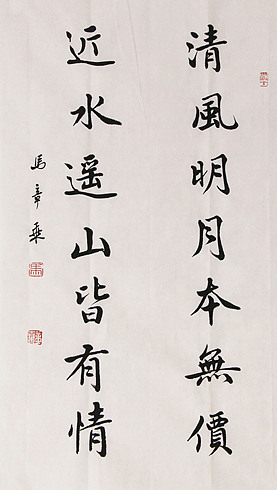 清風明月本無價
近水遥山皆有情
馬章乘